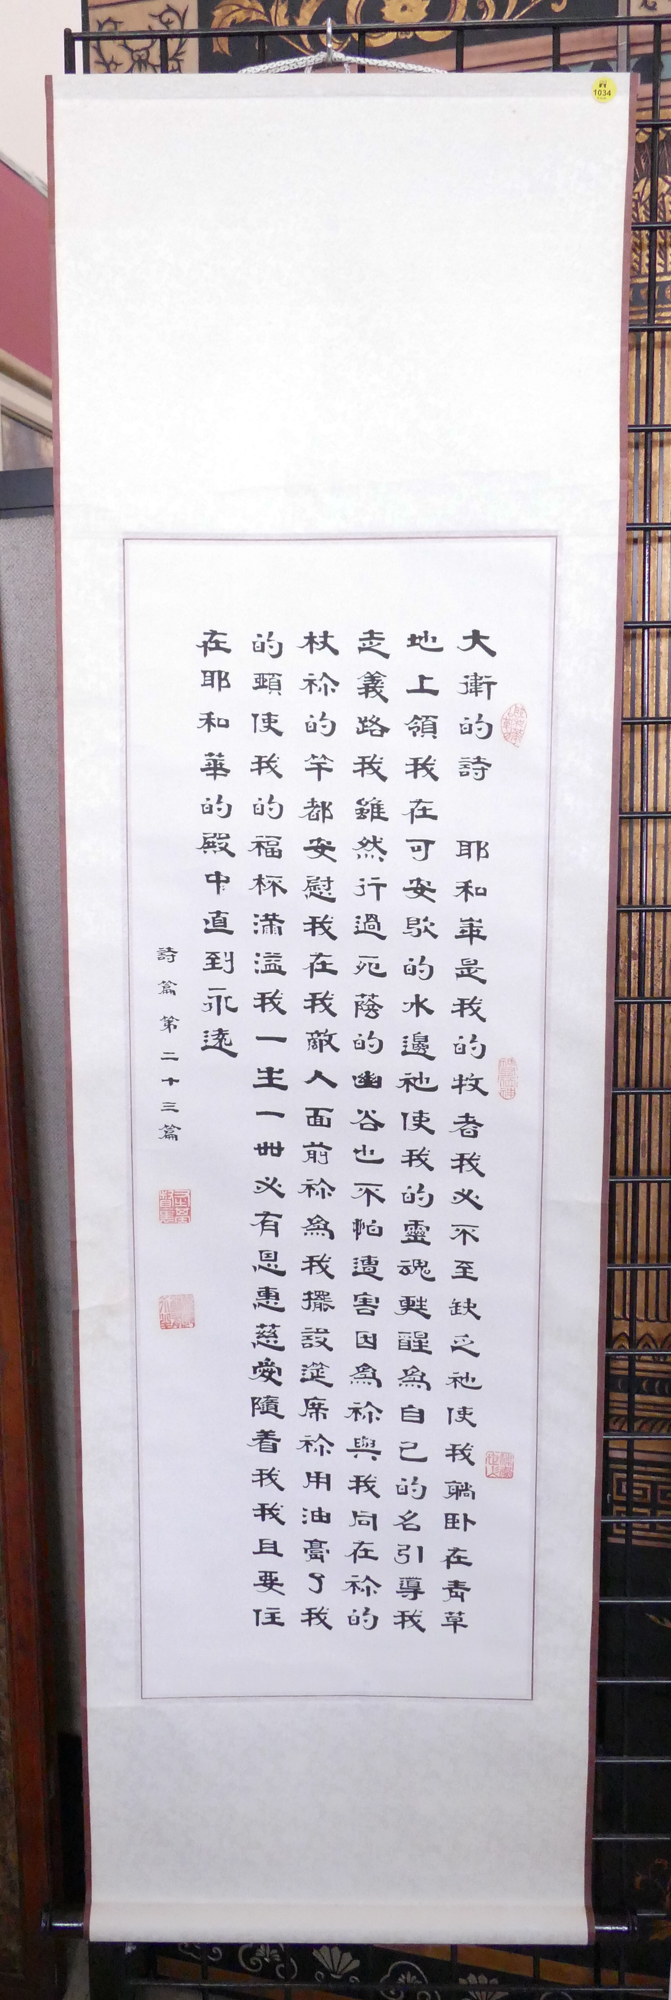 大衛的詩 耶和華是我的牧者我必不至缺乏祂使我躺卧在青草
地上領我在可安歇的水邊祂使我的靈魂甦醒為自己的名引導我
走義路我雖然行過死蔭的幽谷也不怕遭害因為祢與我同在祢的
杖祢的竿都安慰我在我敵人面前祢為我擺設筵席祢用油膏了我
的頭使我的福杯滿溢我一生一世必有恩惠慈愛隨着我我且要住
在耶和華的殿中直到永遠
詩篇第二十三篇
1034